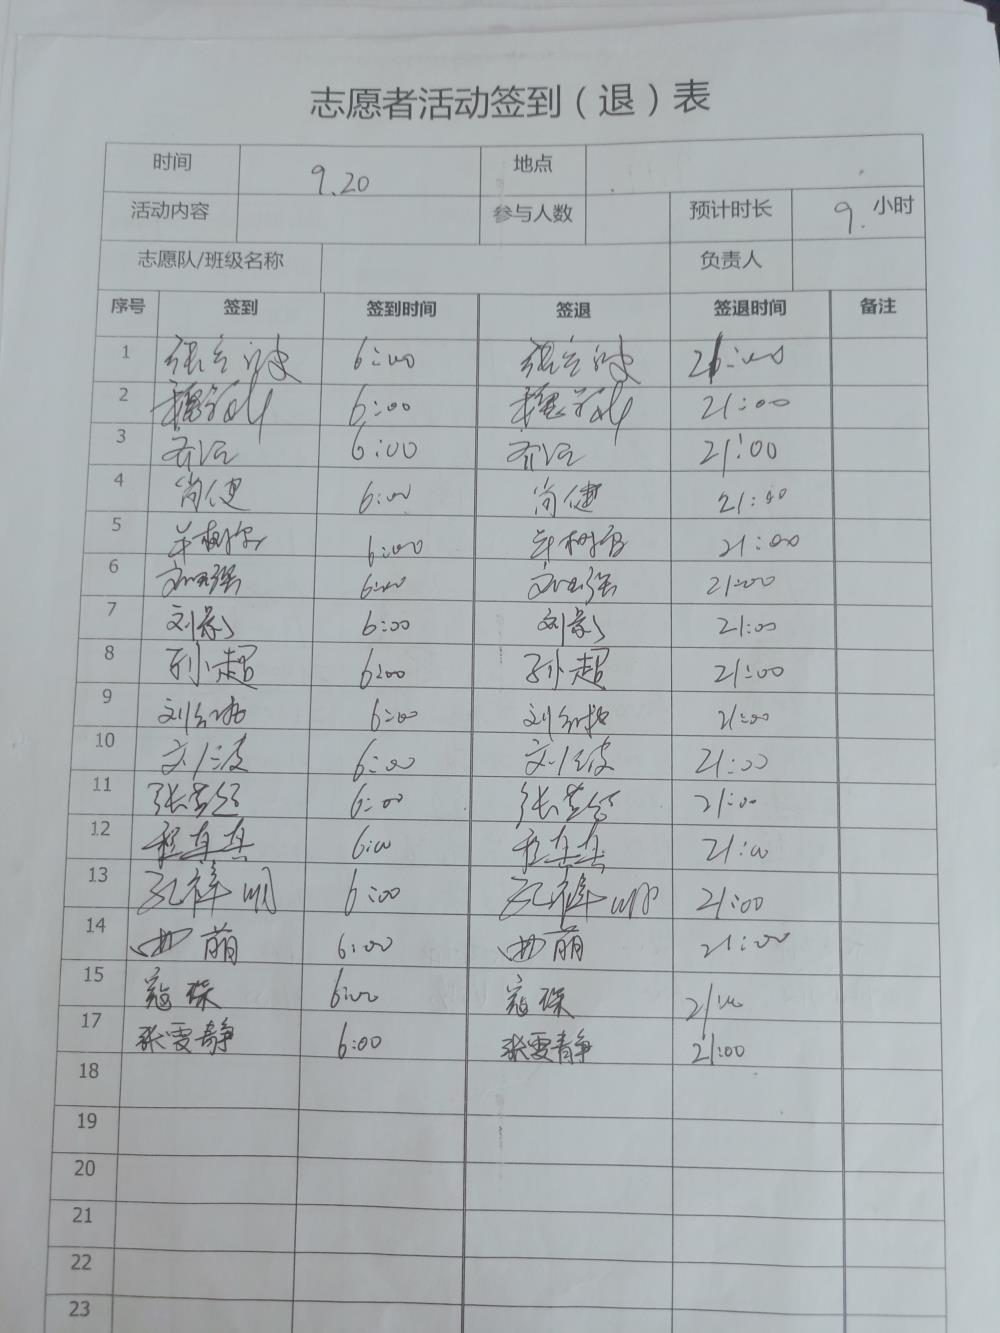 志愿者活动签到（退）表
时间 9.20 地点
活动内容 参与人数 预计时长 9. 小时
志愿队/班级名称 负责人
序号 签到 签到时间 签退 签退时间 备注
1 6:00
2 6:00 21:00
3 乔江 6:00 乔江 21:00
4 尚健 6:00 尚健 21:00
5 6:00 21:00
6 6:00 21:00
7 刘影 6:00 刘影 21:00
8 孙超 6:00 孙超 21:00
9 6:00 21:00
10 6:00 21:00
11 6:00 21:00
12 6:00 21:00
13 孔祥明 6:00 孔祥明 21:00
14 曲萌 6:00 曲萌 21:00
15 寇琛 6:00 寇琛 21:00
17 张雯静 6:00 张雯静 21:00
18
19
20
21
22
23